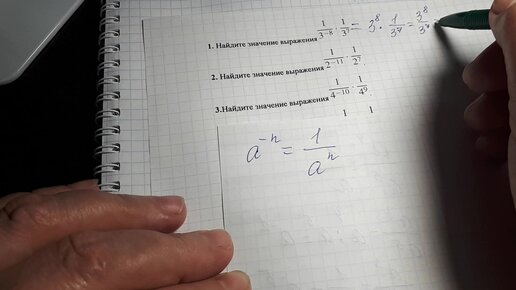 1. Найдите значение выражения 1/3⁻⁸ · 1/3⁷ = 3⁸ · 1/3⁷ = 3⁸/3⁷
2. Найдите значение выражения 1/2⁻¹¹ · 1/2⁷.
3.Найдите значение выражения 1/4⁻¹⁰ · 1/4⁹.
1 1
a⁻ⁿ = 1/aⁿ